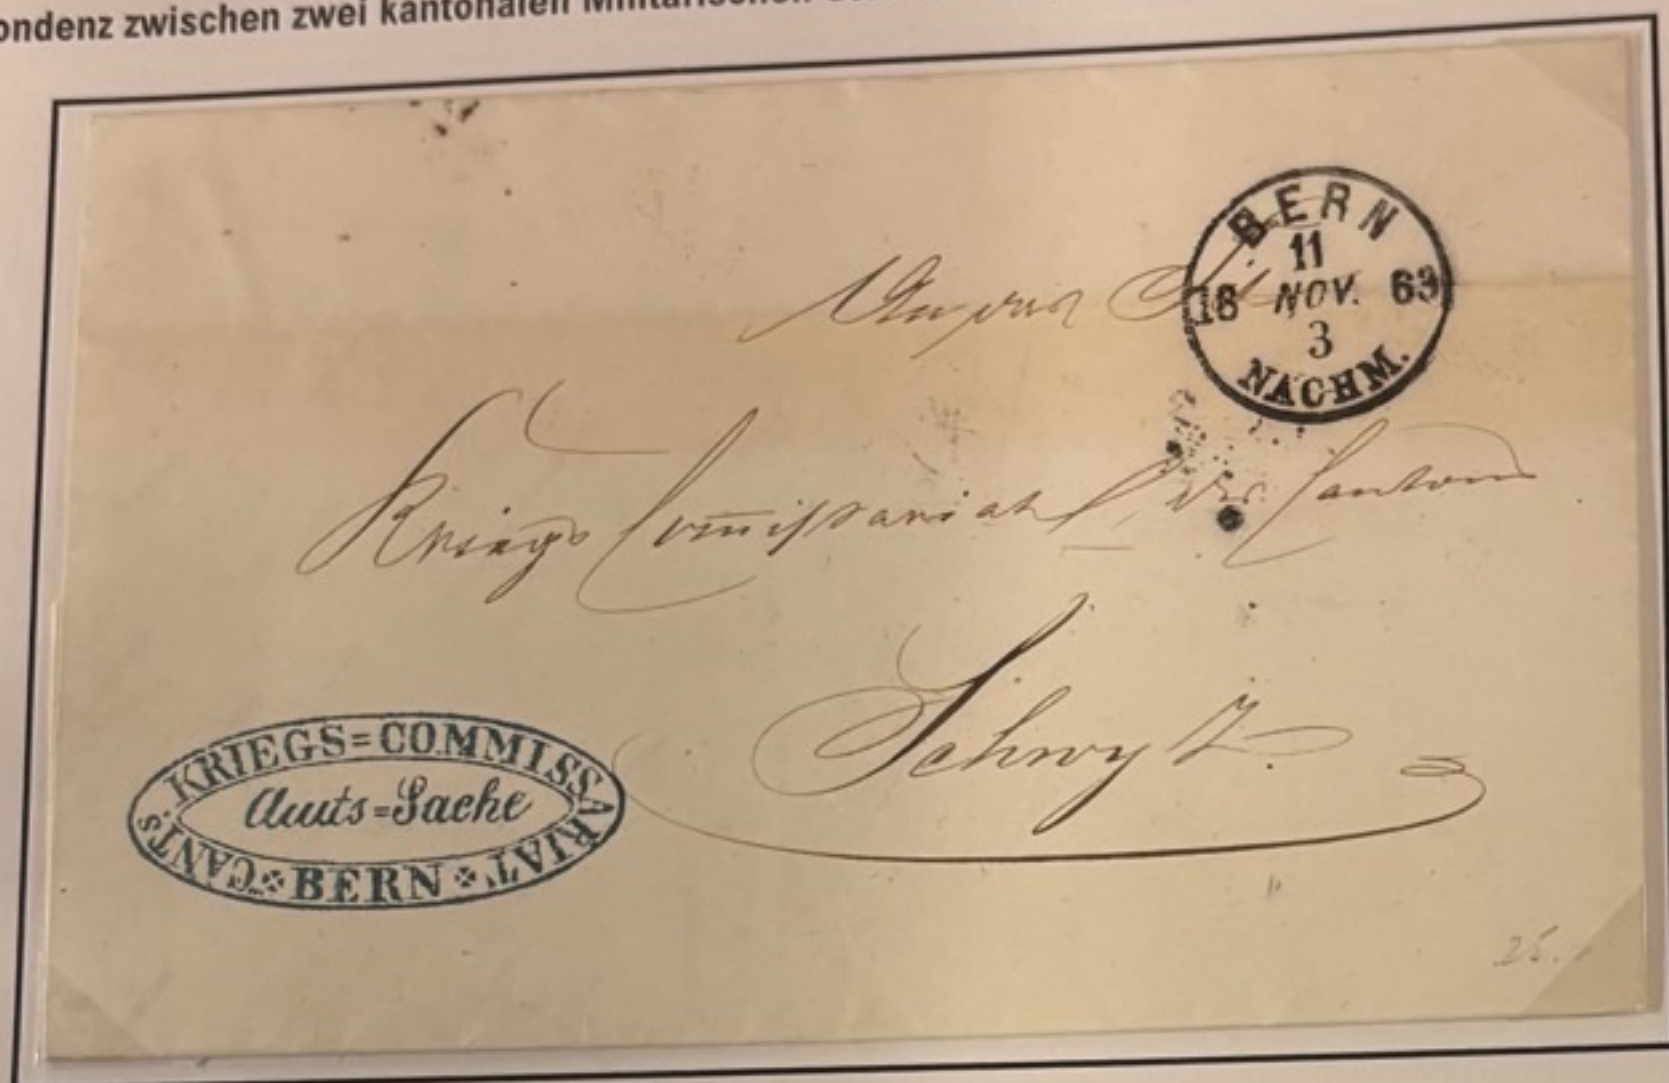 ondenz zwischen zwei kantonalen Militärischen
BERN
11
18 NOV. 63
3
NACHM.
An das
Kriegs Commissariat des Cantons
Schwytz.
KRIEGS=COMMISSARIAT
Amts=Sache
CANTS. BERN
25.